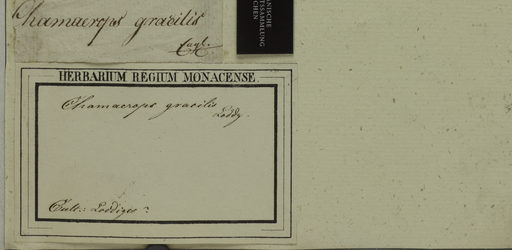 Chamaerops gracilis
Engl.
NISCHE
TSSAMMLUNG
CHEN
HERBARIUM REGIUM MONACENSE.
Chamaerops gracilis
Loddg.
Cult.: Loddiges?